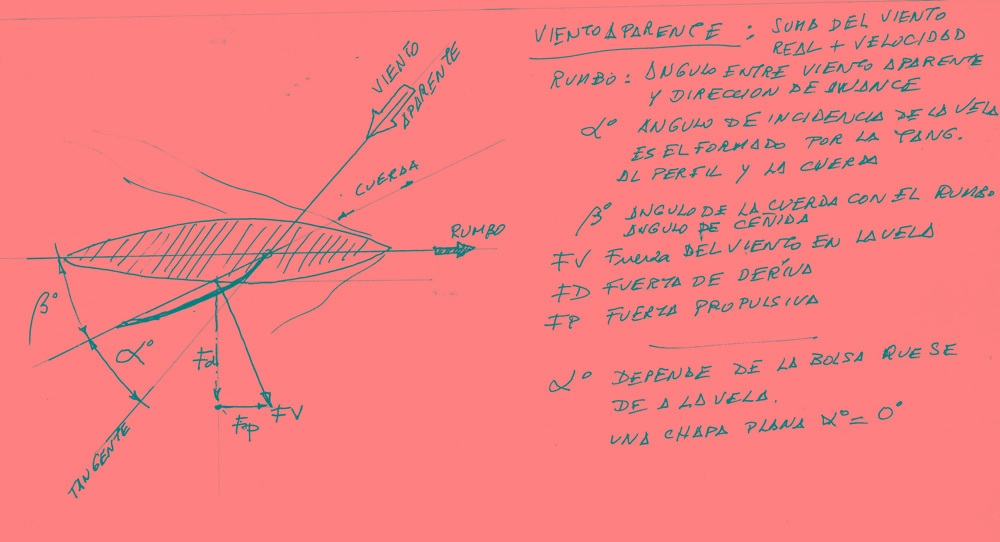 VIENTO
APARENTE
CUERDA
RUMBO
β°
α°
Fd
FV
Fp
TANGENTE
VIENTO APARENTE : SUMA DEL VIENTO
REAL + VELOCIDAD
RUMBO : ANGULO ENTRE VIENTO APARENTE
Y DIRECCION DE AVANCE
α° ANGULO DE INCIDENCIA DE LA VELA
ES EL FORMADO POR LA TANG.
AL PERFIL Y LA CUERDA
β° ANGULO DE LA CUERDA CON EL RUMBO
ANGULO DE CEÑIDA
FV Fuerza DEL VIENTO EN LA VELA
FD FUERZA DE DERIVA
FP FUERZA PROPULSIVA
α° DEPENDE DE LA BOLSA QUE SE
DE A LA VELA.
UNA CHAPA PLANA α° = 0°